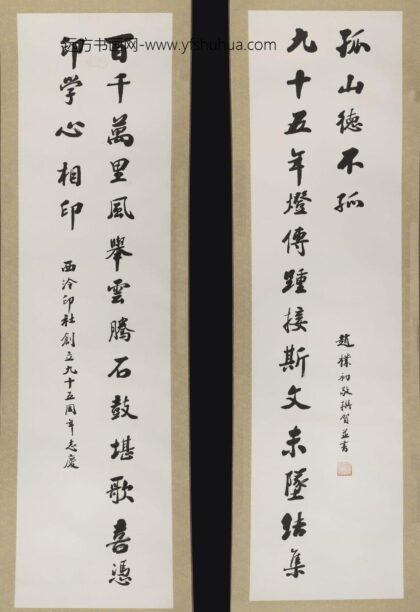 远方书画网-www.yfshuhua.com
百千萬里風舉雲騰石鼓堪歌喜憑
印学心相印
西泠印社創立九十五周年志慶
九十五年燈傳踵接斯文未墜結集
孤山德不孤
趙樸初敬撰賀並書